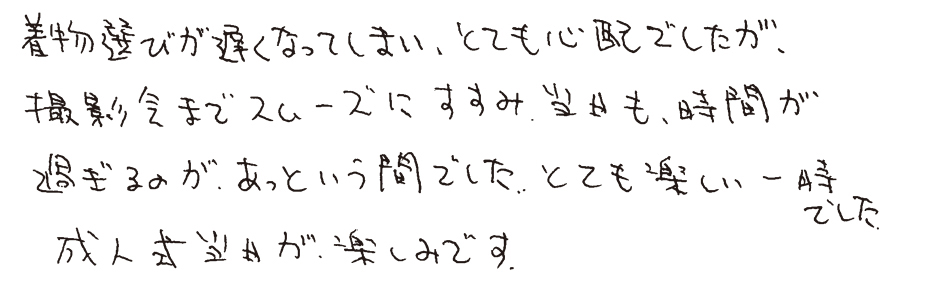 着物選びが遅くなってしまい、とても心配でしたが、
撮影会までスムーズにすすみ、当日も、時間が
過ぎるのが、あっという間でした。とても楽しい一時
でした
成人式当日が、楽しみです。